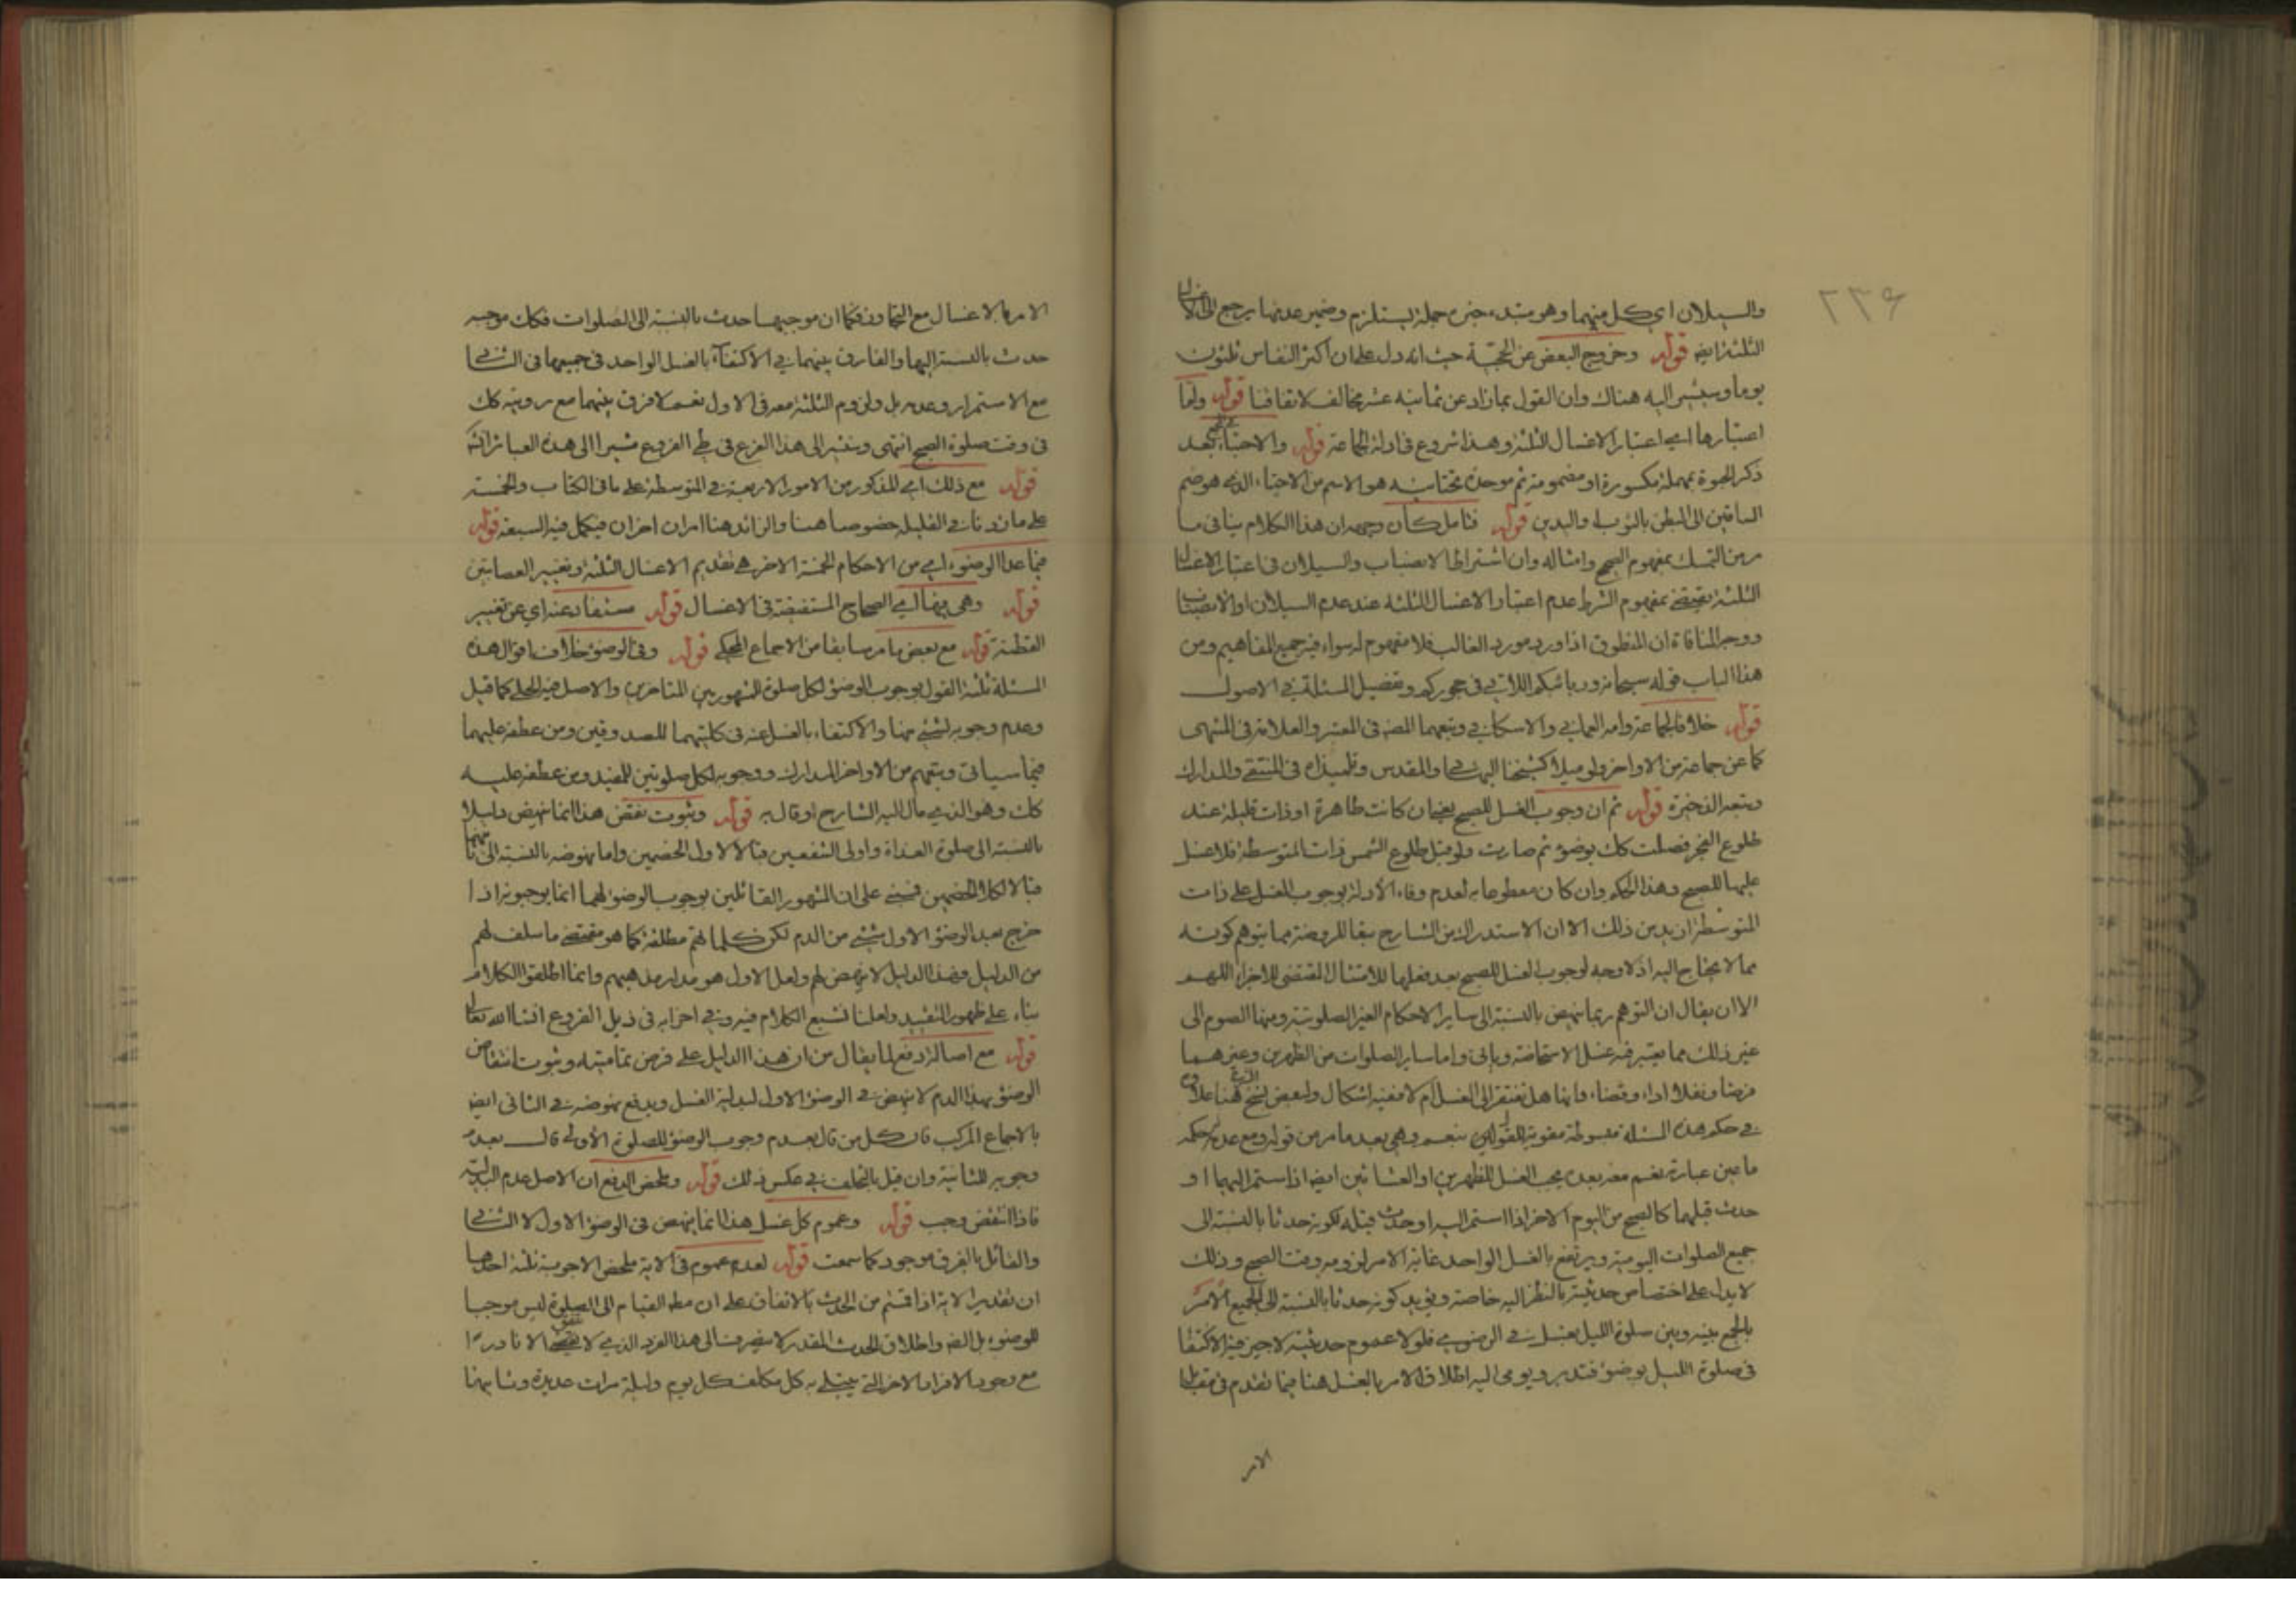 ٢٣۶
والسيلان اي كل منهما وهو مبتدء خبره جملة يستلزم وضمير عدمها يرجع الى الاغسال
الثلثة ايضا قوله وخروج البعض عن الحجية حيث انه دل على ان اكثر النفاس ثلثون
يوما وسيشير اليه هناك وان القول بما زاد عن ثمانية عشر مخالف لاتفاقنا قوله ولنا
اعتبارها اي اعتبار الاغسال الثلثة وهذا شروع في ادلة الجماعة قوله والاحتباء بعد
ذكر الحبوة بمهملة مكسورة او مضمومة ثم موحدة تحتانية هو الاسم من الاحتباء الذي هو ضم
الساقين الى البطن بالثوب او اليدين قوله فتامل كان وجهه ان هذا الكلام ينافي ما
مر من التمسك بمفهوم الصحيح وامثاله وان اشتراط الانصباب والسيلان في اعتبار الاغسال
الثلثة يقتضي بمفهوم الشرط عدم اعتبار الاغسال الثلثة عند عدم السيلان او الانصباب
ووجه المنافاة ان المنطوق اذا ورد مورد الغالب فلا مفهوم له سواء فيه جميع المفاهيم ومن
هذا الباب قوله سبحانه وربائبكم اللاتي في حجوركم وتفصيل المسئلة في الاصول
قوله خلافا لجماعة وامه العماني والاسكافي وتبعهما المصنف في المعتبر والعلامة في المنتهى
كما عن جماعة من الاواخر ولو ميلا كشيخنا البهائي والمقدس وتلميذاه في المنتقى والمدارك
وتبعه الذخيرة قوله ثم ان وجوب الغسل للصبح يعني ان كانت طاهرة او ذات قليلة عند
طلوع الفجر فصلت كك بوضوء ثم صارت ولو قبل طلوع الشمس ذات المتوسطة فلا غسل
عليها للصبح وهذا الحكم وان كان مقطوعا به لعدم وفاء الادلة بوجوب الغسل على ذات
المتوسطة ازيد من ذلك الا ان الاستدراك من الشارح تبعا للروضة مما يتوهم كونه
مما لا يحتاج اليه اذ لا وجه لوجوب الغسل للصبح بعد فعلها للامتثال المقتضي للاجزاء اللهم
الا ان يقال ان التوهم ربما ينهض بالنسبة الى ساير الاحكام الغير الصلوتية ومنها الصوم الى
غير ذلك مما يعتبر فيه غسل الاستحاضة وياتي واما ساير الصلوات من الظهرين وغيرهما
فرضا ونفلا اداء وقضاء فانها هل تفتقر الى الغسل ام لا ففيه اشكال ولبعض نسخ الشرح هنا علاوة
في حكم هذه المسئلة مبسوطة مقوية للقولين نعم وهي بعد ما مر من قوله ومع عدم حكمه
ما عين عبارته نعم معه بعده يجب الغسل للظهرين او العشائين ايضا اذا استمر اليهما او
حدث قبلهما كالصبح من اليوم الاخر اذا استمر اليه او حدث قبله لكونه حدثا بالنسبة الى
جميع الصلوات اليومية ويرتفع بالغسل الواحد غاية الامر لزومه وقت الصبح وذلك
لا يدل على اختصاص حدثيته بالنظر اليه خاصة ويؤيد كونه حدثا بالنسبة الى الجميع الامر
بالجمع بينه وبين صلوة الليل بغسل في الرضوي فلولا عموم حدثيته لاجيز فيه الاكتفا
في صلوة الليل بوضوء فتدبر ويومي اليه اطلاق الامر بالغسل هنا فيما تقدم في مقابل
الامر
الامر بالاغسال مع التجاوز فكما ان موجبها حدث بالنسبة الى الصلوات فكك موجبه
حدث بالنسبة اليها والفارق بينهما في الاكتفاء بالغسل الواحد في جميعها في الثاني
مع الاستمرار وعدمه بل ولزوم الثلثة معه في الاول نعم لا فرق بينهما مع رؤيته كك
في وقت صلوة الصبح انتهى وسنشير الى هذا الفرع في طي الفروع مشيرا الى هذه العبارة انشـ
قوله مع ذلك اي المذكور من الامور الاربعة في المتوسطة على ما في الكتاب والخمسة
على ما زدنا في القليلة خصوصا هنا والزائد هنا امران اخران فيكمل فيه السبعة قوله
فيما عدا الوضوء اي من الاحكام الخمسة الاخر هي تقديم الاغسال الثلثة وتغيير العصابتين
قوله وهي فيها اي الصحاح المستفيضة في الاغسال قوله مستفاد عنه اي عن تغيير
القطنة قوله مع بعض ما مر سابقا من الاجماع المحكي قوله وفي الوضوء خلاف اقوال هذه
المسئلة ثلثة القول بوجوب الوضوء لكل صلوة المشهور بين المتاخرين والاصل فيه الحلي كما قيل
وعدم وجوبه لشيء منها والاكتفاء بالغسل عنه في كلتيهما للصدوقين ومن عطفه عليهما
فيما سياتي وتبعهم من الاواخر المدارك ووجوبه لكل صلوتين للمفيد ومن عطفه عليه
كك وهو الذي مال اليه الشارح او قال به قوله وثبوت نقض هذا انما ينهض دليلا
بالنسبة الى صلوة الغداة واولى الشفعين قبالا لاول الخصمين واما نهوضه بالنسبة الى ثانيتهما
قبالا لكلا الخصمين فمبني على ان المشهور القائلين بوجوب الوضوء لهما انما يوجبونه اذا
خرج بعد الوضوء الاول شيء من الدم لكن كلماتهم مطلقة كما هو مقتضى ما سلف لهم
من الدليل وهذا الدليل لا ينهض لهم ولعل الاول هو مدار مذهبهم وانما اطلقوا الكلام
بناء على ظهور التقييد ولعلنا نشبع الكلام فيه وفي اجزائه في ذيل الفروع انشا الله تعالى
قوله مع اصالة دفع لما يقال من ان هذا الدليل على فرض تماميته وثبوت انتقاض
الوضوء بهذا الدم لا ينهض في الوضوء الاول لبدلية الغسل ويدفع بنهوضه في الثاني ايضا
بالاجماع المركب فان كل من قال بعدم وجوب الوضوء للصلوة الاولى قال بعدم
وجوبه للثانية وان قيل بالتخلف في عكس ذلك قوله وملخص الدفع ان الاصل عدم البدلية
فاذا انتقض وجب قوله وعموم كل غسل هذا انما ينهض في الوضوء الاول لا الثاني
والقائل بالفرق موجود كما سمعت قوله لعدم عموم في الاية ملخص الاجوبة ثلثة احدها
ان تقدير الاية اذا قمتم من الحدث بالاتفاق على ان مطلق القيام الى الصلوة ليس موجبا
للوضوء بل النص واطلاق الحدث المقدر لا ينصرف الى هذا الفرد الذي لا يتفق الا نادرا
مع وجود الافراد الاخر التي يبتلى به كل مكلف كل يوم وليلة مرات عديدة وثانيها